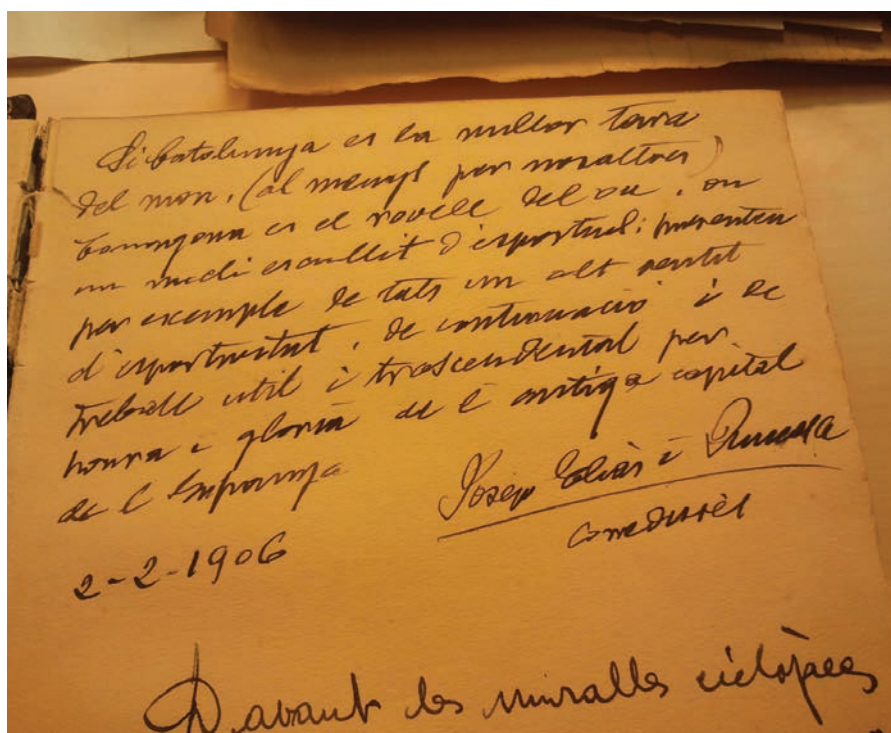 Si Catalunya es la millor terra
del mon, (al menys per nosaltres)
Tarragona es el rovell del ou, on
un nucli escullit d'esportius; presenten
per exemple de tots un alt sentit
d'esportivitat, de continuació i de
treball util i trascendental per
honra i gloria de l'antiga capital
de l'Espanya
Josep Elias i Juncosa
Corredisses
2-2-1906
Davant les muralles ciclòpees